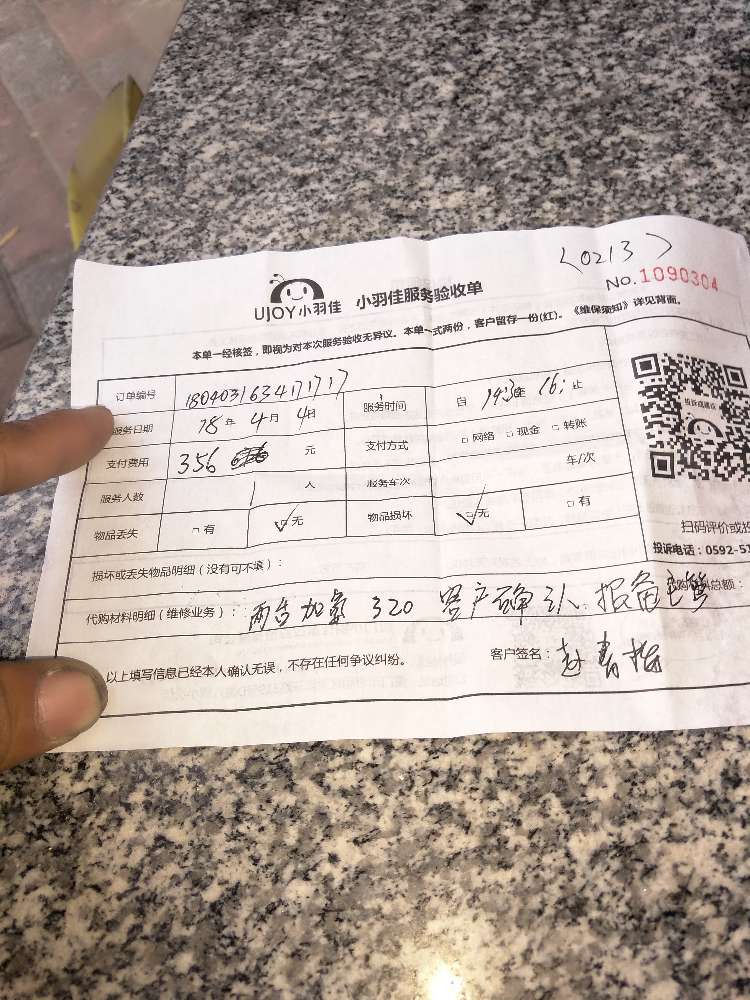 (0213)
UJOY小羽佳 小羽佳服务验收单
No.1090304
本单一经核签,即视为对本次服务验收无异议。本单一式两份,客户留存一份(红)。《维保须知》详见背面。
订单编号 1804031634171717
服务日期 18年 4月 4日 服务时间 自 16: 止
支付费用 356 元 支付方式 □网络 □现金 □转账
服务人数 1 人 服务车次 车/次
物品丢失 □有 ☑无 物品损坏 ☑无 □有
损坏或丢失物品明细(没有可不填):
代购材料明细(维修业务): 两台加氟 320 客户确认 报备
总额:
以上填写信息已经本人确认无误,不存在任何争议纠纷。 客户签名: 赵
投诉或建议
扫码评价或投
投诉电话:0592-57